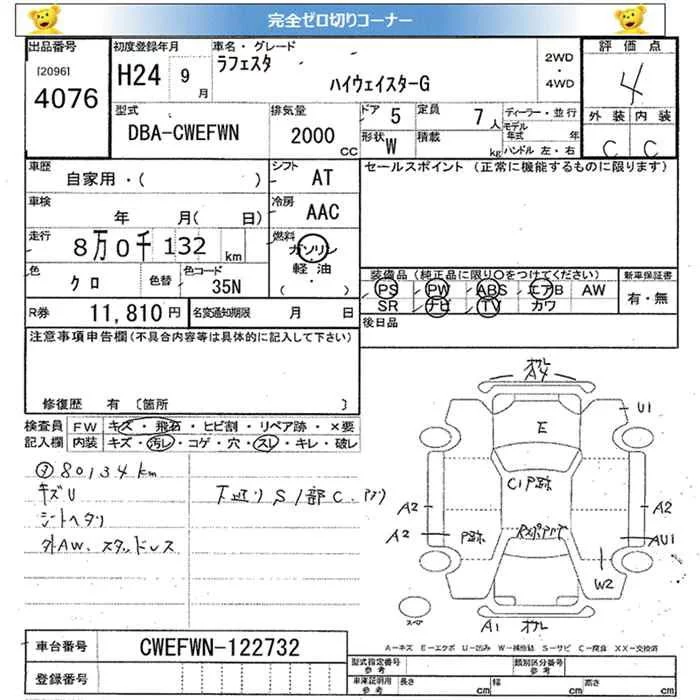 完全ゼロ切りコーナー
出品番号
[2096]
4076
初度登録年月
H24 9月
車名・グレード
ラフェスタ
ハイウェイスターG
2WD
・
4WD
評価点
4
外装 内装
C C
型式
DBA-CWEFWN
排気量
2000 CC
ドア 5
定員 7人
形状 W
積載 kg
ディーラー・並行
モデル年式 年
ハンドル 左・右
車歴
自家用・( )
シフト AT
車検
年 月( 日)
冷房 AAC
走行
8万0千132 km
燃料
ガソリン
軽油
( ・ )
色
クロ
色替
色コード
35N
R券 11,810円
名変通知期限 月 日
セールスポイント (正常に機能するものに限ります)
装備品 (純正品に限り○をつけてください)
PS PW ABS エアB AW
SR ナビ TV カワ
新車保証書
有・無
後日品
注意事項申告欄(不具合内容等は具体的に記入して下さい)
修復歴 有 〔箇所 〕
検査員記入欄
FW キズ・飛石・ヒビ割・リペア跡・×要
内装 キズ・汚レ・コゲ・穴・スレ・キレ・破レ
80134km
キズU
シートヘタリ
外AW、スタッドレス
下廻りS1部C
A4
U1
E
C1P跡
A2
A2
A2
P跡
AU1
W2
A1
スペア
A-キズ E-エクボ U-凹み W-補修跡 S-サビ C-腐食 XX-交換済
車台番号 CWEFWN-122732
登録番号
型式指定番号 参考
類別区分番号 参考
車庫証明用 参考
長さ cm
幅 cm
高さ cm